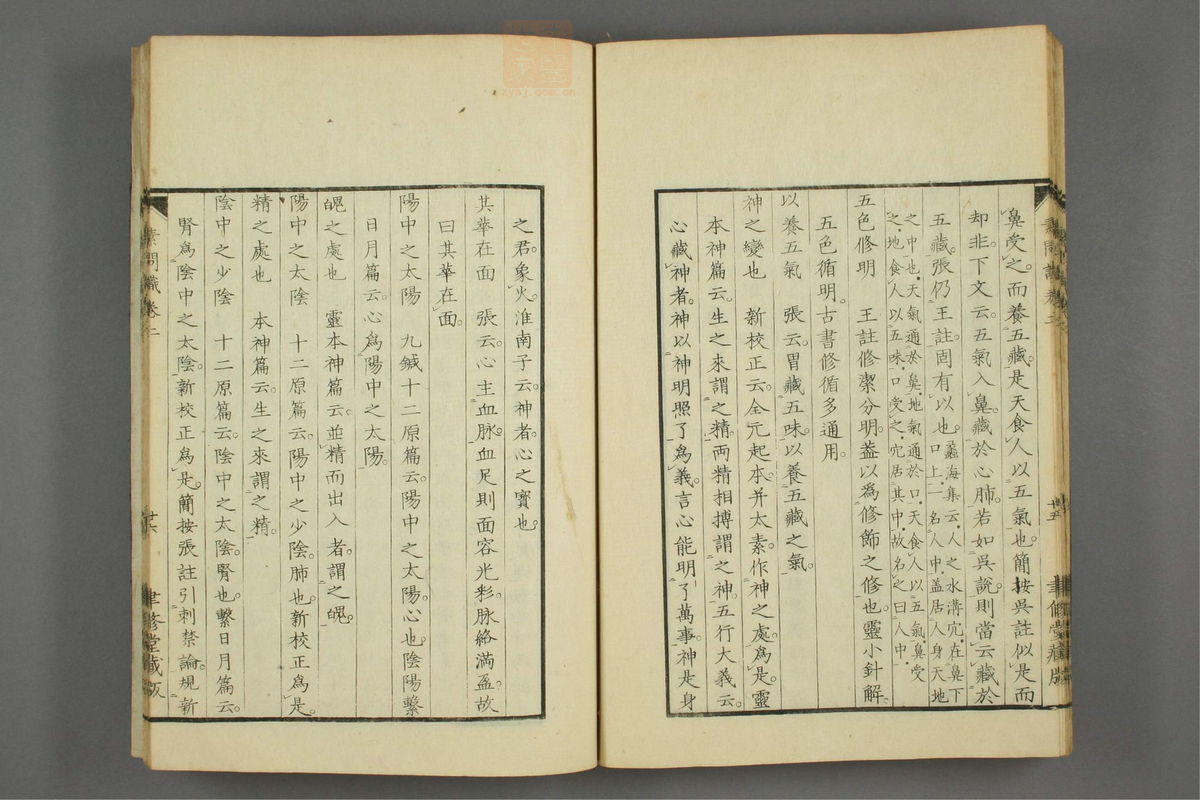 鼻受之。而養五藏。是天食人以五氣也。簡按吳註似是而
却非。下文云。五氣入鼻。藏於心肺。若如吳說。則當云藏於
五藏。張仍王註。固有以也。蠡海集云。人之水溝穴。在鼻下
口上。一名人中。盖居人身天地
之中也。天氣通於鼻。地氣通於口。天食人以五氣。鼻受
之。地食人以五味。口受之。穴居其中。故名之曰人中。
五色修明　王註修潔分明。蓋以為修飾之修也。靈小針解。
五色循明。古書修循多通用。
以養五氣　張云。胃藏五味。以養五藏之氣。
神之變也　新校正云。全元起本。并太素。作神之處。為是。靈
本神篇云。生之來謂之精。両精相搏謂之神。五行大義云。
心藏神者。神以神明照了為義。言心能明了萬事。神是身
素問識卷二
廿五
聿修堂藏版
之君。象火。淮南子云。神者。心之寶也。
其華在面　張云。心主血脉。血足則面容光彩。脉絡滿盈。故
曰其華在面。
陽中之太陽　九鍼十二原篇云。陽中之太陽。心也。陰陽繫
日月篇云。心為陽中之太陽。
魄之處也　靈本神篇云。並精而出入者。謂之魄。
陽中之太陰　十二原篇云。陽中之少陰。肺也。新校正為是。
精之處也　本神篇云。生之來謂之精。
陰中之少陰　十二原篇云。陰中之太陰。腎也。繫日月篇云。
腎為陰中之太陰。新校正為是。簡按張註引刺禁論。規新
素問識卷二
廿六
聿修堂藏版
zysj.com.cn